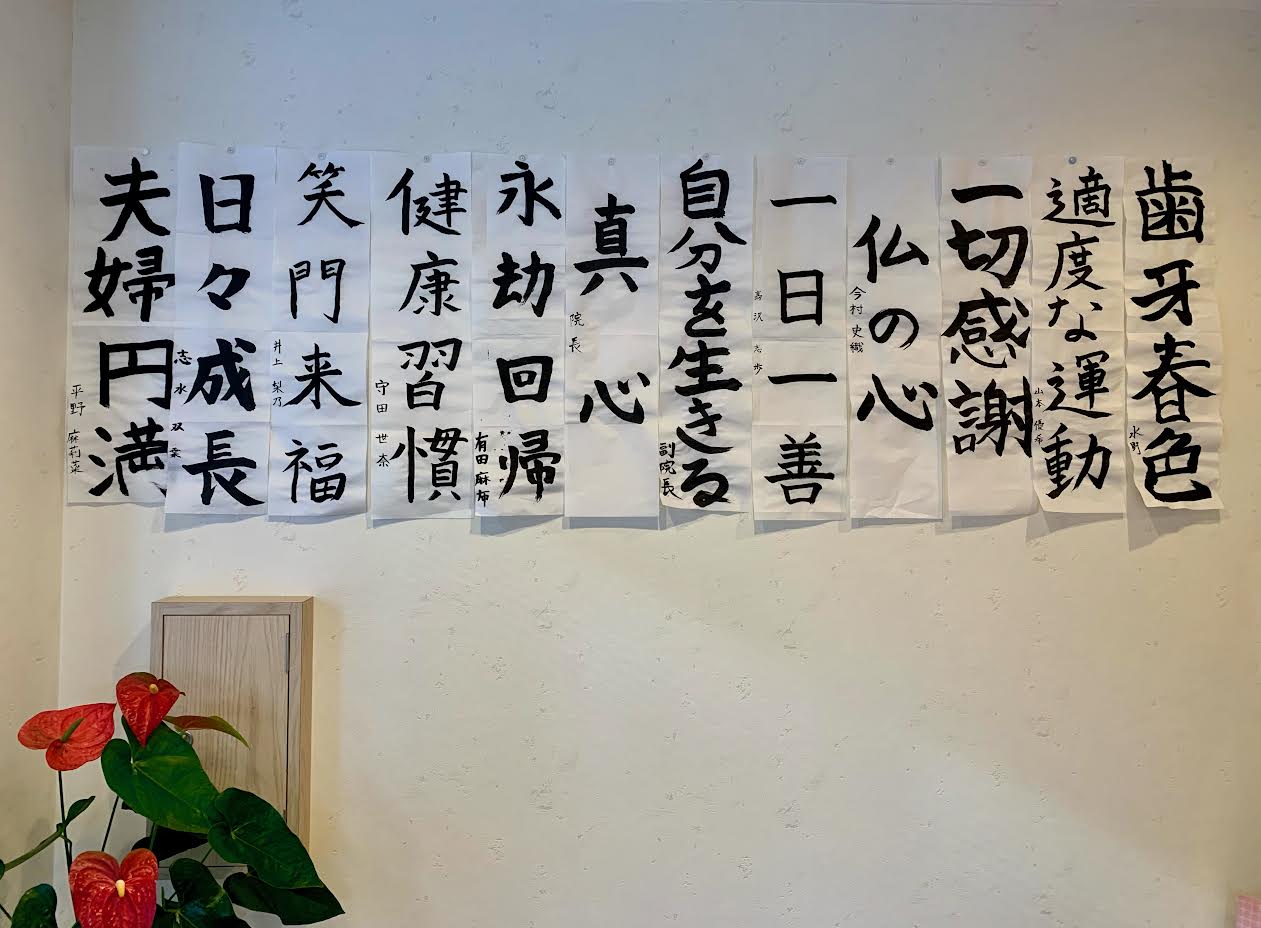 歯牙春色
水野
適度な運動
山本 優希
一切感謝
仏の心
今村 史織
一日一善
高沢 志歩
自分を生きる
副院長
真心
院長
永劫回帰
有田
健康習慣
守田 世奈
笑門来福
井上 梨乃
日々成長
志水 双葉
夫婦円満
平野 麻莉菜